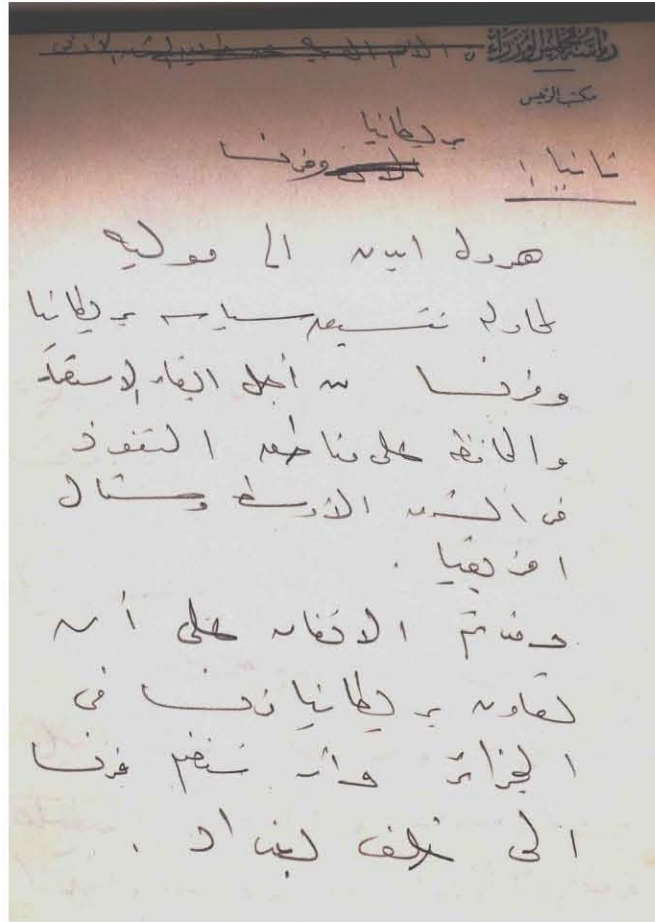 رئاسة مجلس الوزراء
مكتب الرئيس
بريطانيا
ثانيا : وفرنسا
هرول ايدن الى موليه
لمحاولة تنسيق سياسة بريطانيا
وفرنسا من أجل ابقاء الاستعمار
والمحافظة على مناطق النفوذ
فى الشرق الأوسط وشمال
افريقيا .
وقد تم الاتفاق على أن
تعاون بريطانيا فرنسا فى
الجزائر وأن تنضم فرنسا
الى حلف بغداد .